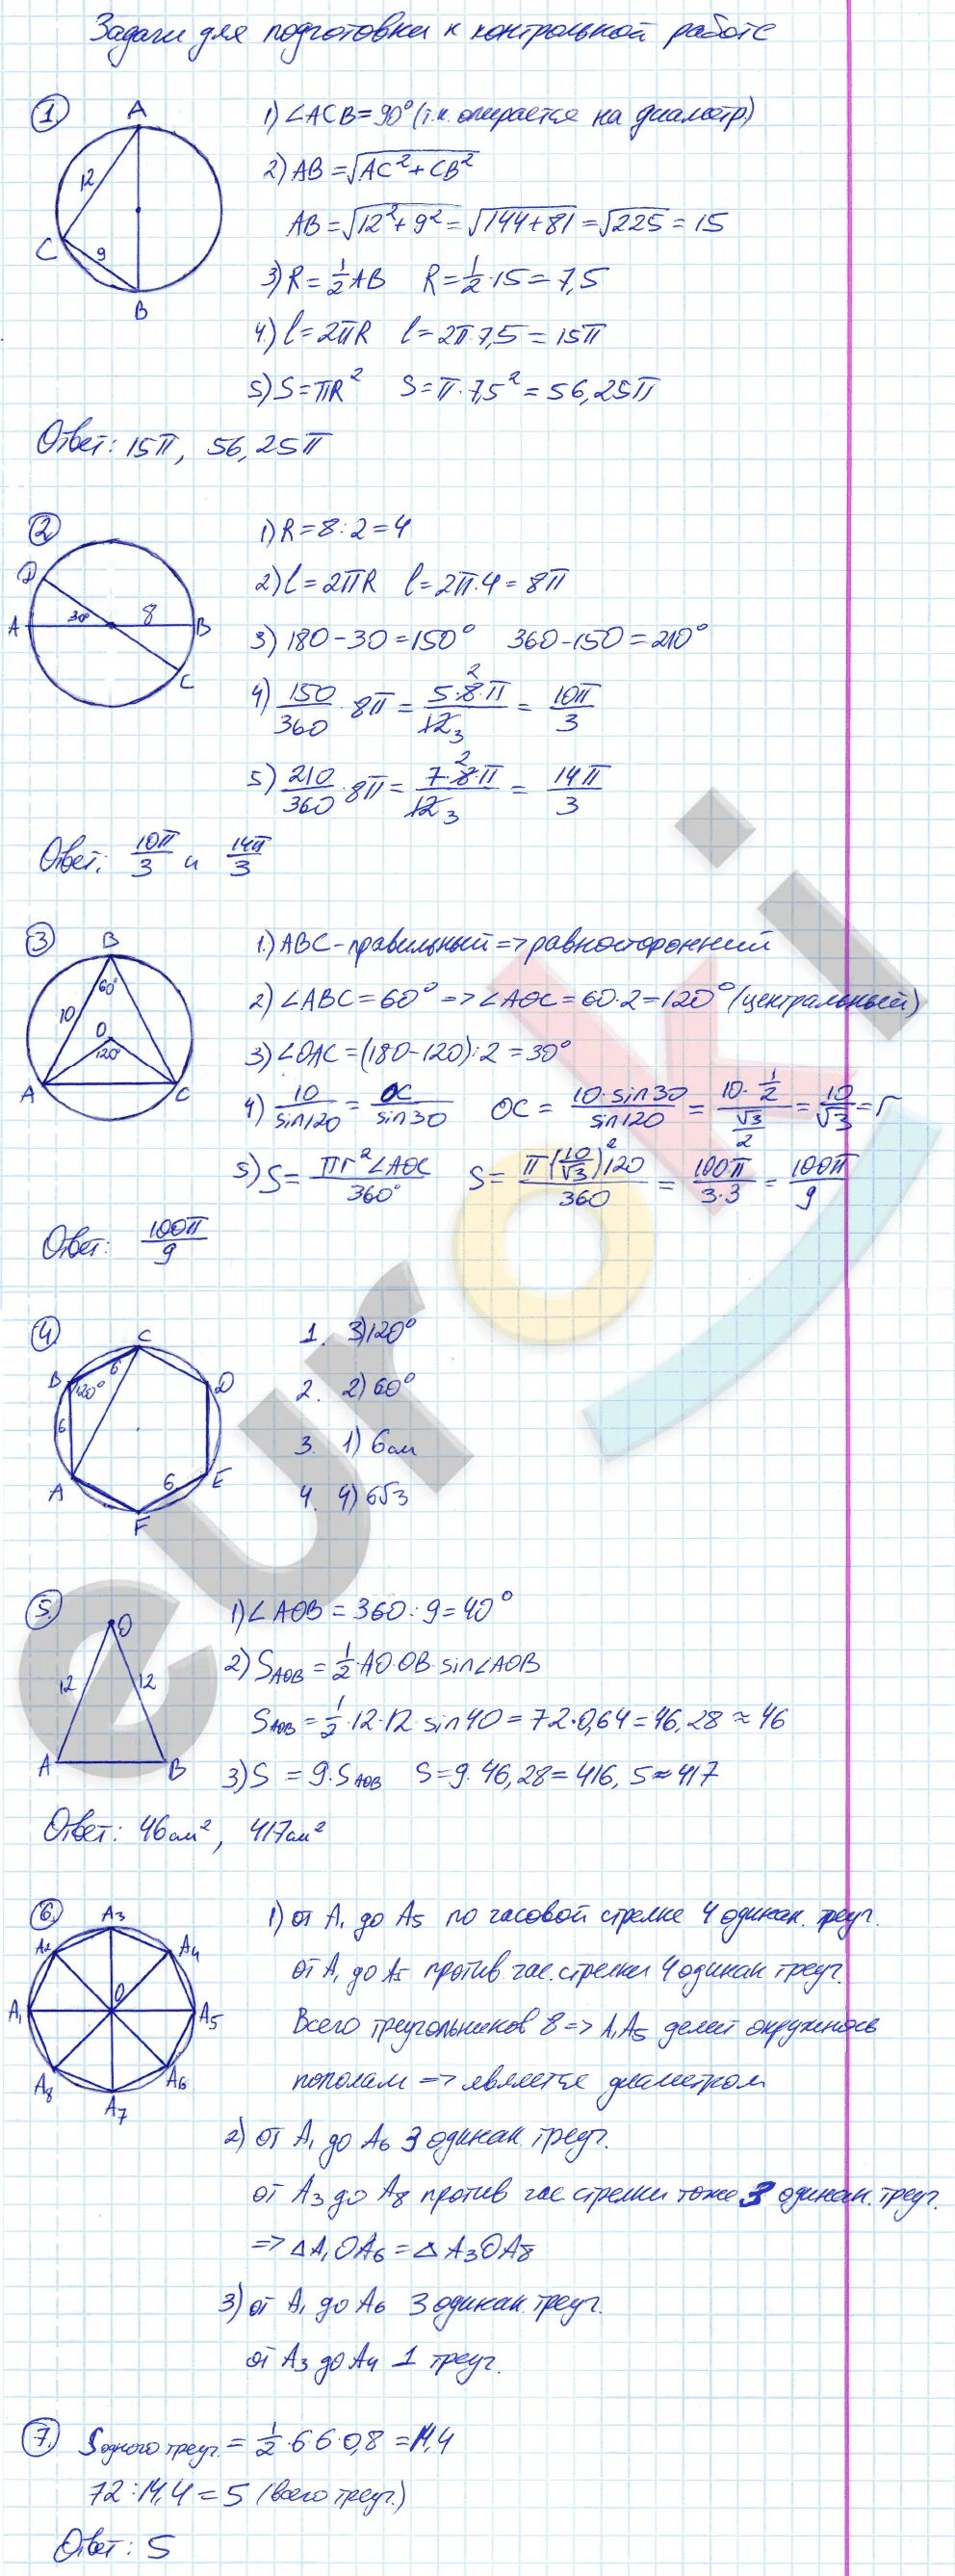 Задачи для подготовки к контрольной работе
1.
A
12
C
9
B
1) ∠ACB = 90° (т.к. опирается на диаметр)
2) AB = √AC² + CB²
AB = √12² + 9² = √144 + 81 = √225 = 15
3) R = 1/2 AB   R = 1/2 · 15 = 7,5
4) l = 2πR   l = 2π · 7,5 = 15π
5) S = πR²   S = π · 7,5² = 56,25π
Ответ: 15π, 56,25π
2
D
A 30° 8 B
C
1) R = 8 : 2 = 4
2) l = 2πR   l = 2π · 4 = 8π
3) 180 - 30 = 150°   360 - 150 = 210°
4) 150/360 · 8π = 5·8²·π/12₃ = 10π/3
5) 210/360 · 8π = 7·8²π/12₃ = 14π/3
Ответ: 10π/3 и 14π/3
3
B
60°
10
O
120°
A C
1.) ABC - правильный => равносторонний
2) ∠ABC = 60° => ∠AOC = 60·2 = 120° (центральный)
3) ∠OAC = (180-120):2 = 30°
4) 10/sin120 = OC/sin30   OC = 10·sin30/sin120 = 10·1/2 / √3/2 = 10/√3 = r
5) S = πr²∠AOC/360°   S = π(10/√3)²120/360 = 100π/3·3 = 100π/9
Ответ: 100π/9
4.
C
B 6 D
120°
6
A 6 E
F
1. 3) 120°
2. 2) 60°
3. 1) 6см
4. 4) 6√3
5.
O
12 12
A B
1) ∠AOB = 360 : 9 = 40°
2) SAOB = 1/2 · AO · OB · sin∠AOB
SAOB = 1/2 · 12 · 12 · sin40 = 72 · 0,64 = 46,28 ≈ 46
3) S = 9 · SAOB   S = 9 · 46,28 = 416,5 ≈ 417
Ответ: 46см², 417см²
6.
A3
A2 A4
A1 O A5
A8 A6
A7
1) от A1 до A5 по часовой стрелке 4 одинак. треуг.
от A1 до A5 против час. стрелки 4 одинак треуг.
Всего треугольников 8 => A1A5 делит окружность
пополам => является диаметром
2) от A1 до A6 3 одинак. треуг.
от A3 до A8 против час стрелки тоже 3 одинак. треуг.
=> △A1OA6 = △A3OA8
3) от A1 до A6 3 одинак. треуг.
от A3 до A4 1 треуг.
7.
Sодного треуг. = 1/2 · 6 · 6 · 0,8 = 14,4
72 : 14,4 = 5 (всего треуг.)
Ответ: 5
euroki